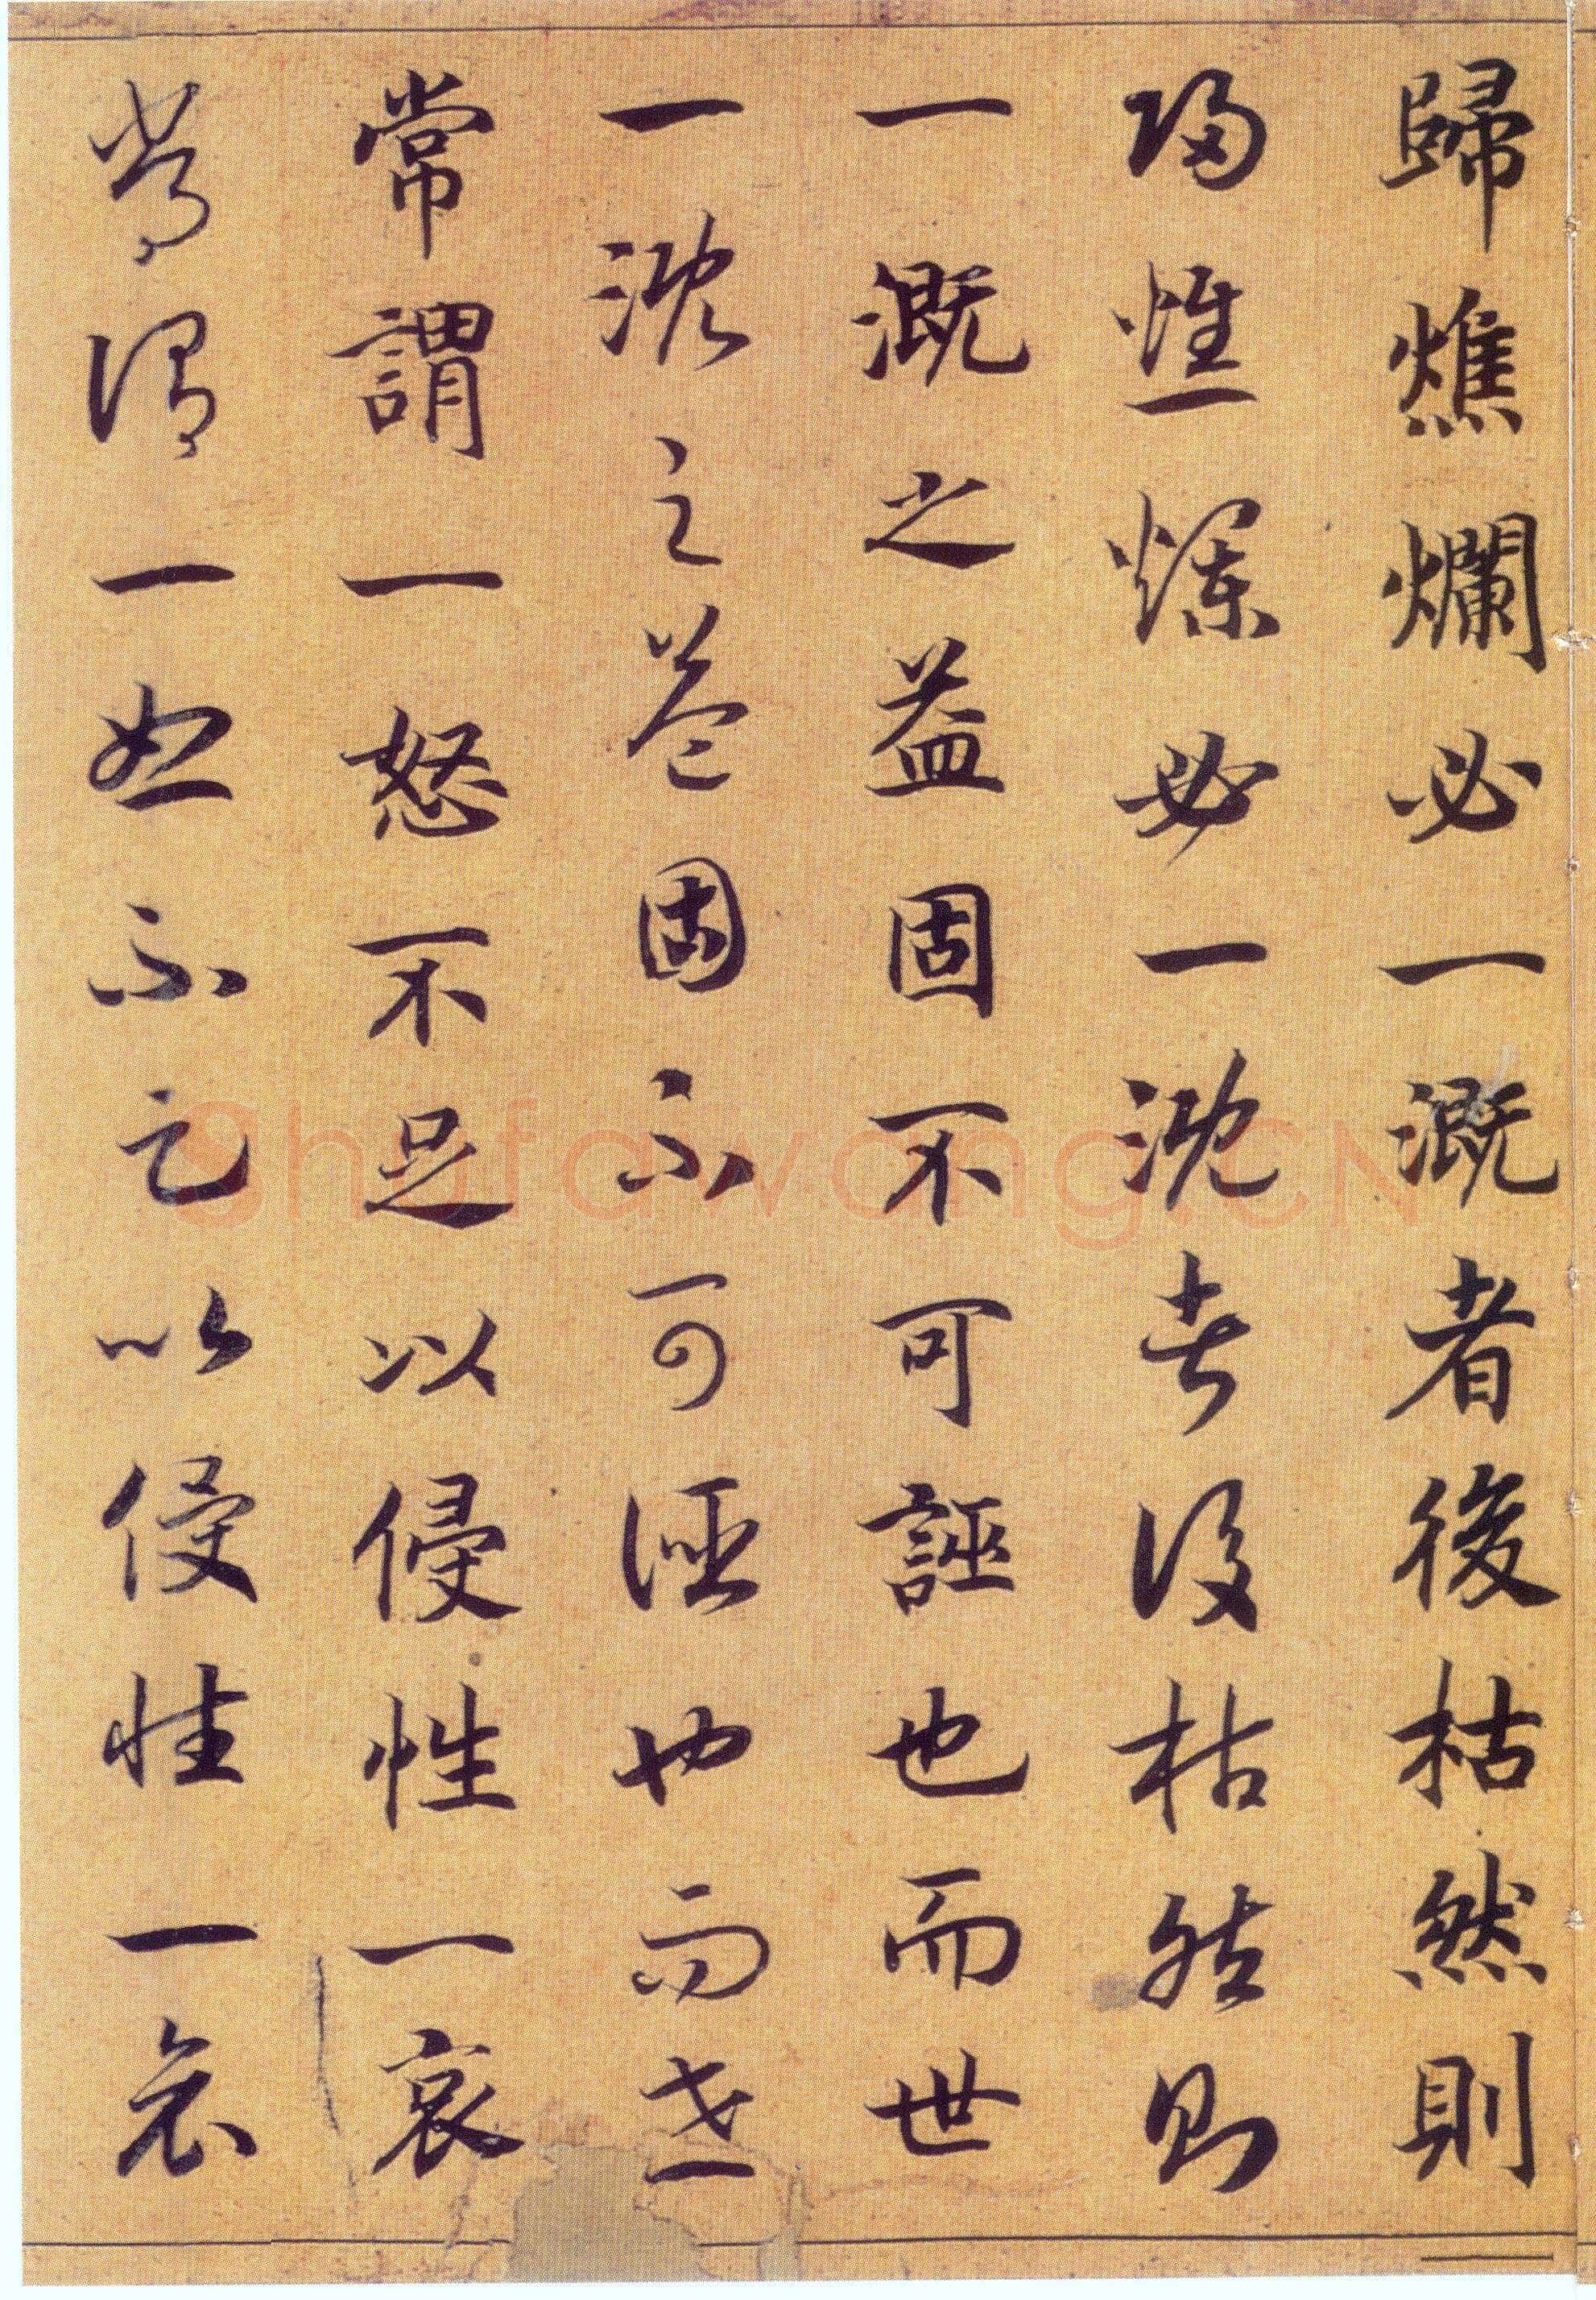 歸燋爛必一溉者後枯然則
歸燋爛必一溉者後枯然則
一溉之益固不可誣也而世
一溉之益固不可誣也而世
常謂一怒不足以侵性一哀
常謂一怒不足以侵性一哀
Shufawang.CN